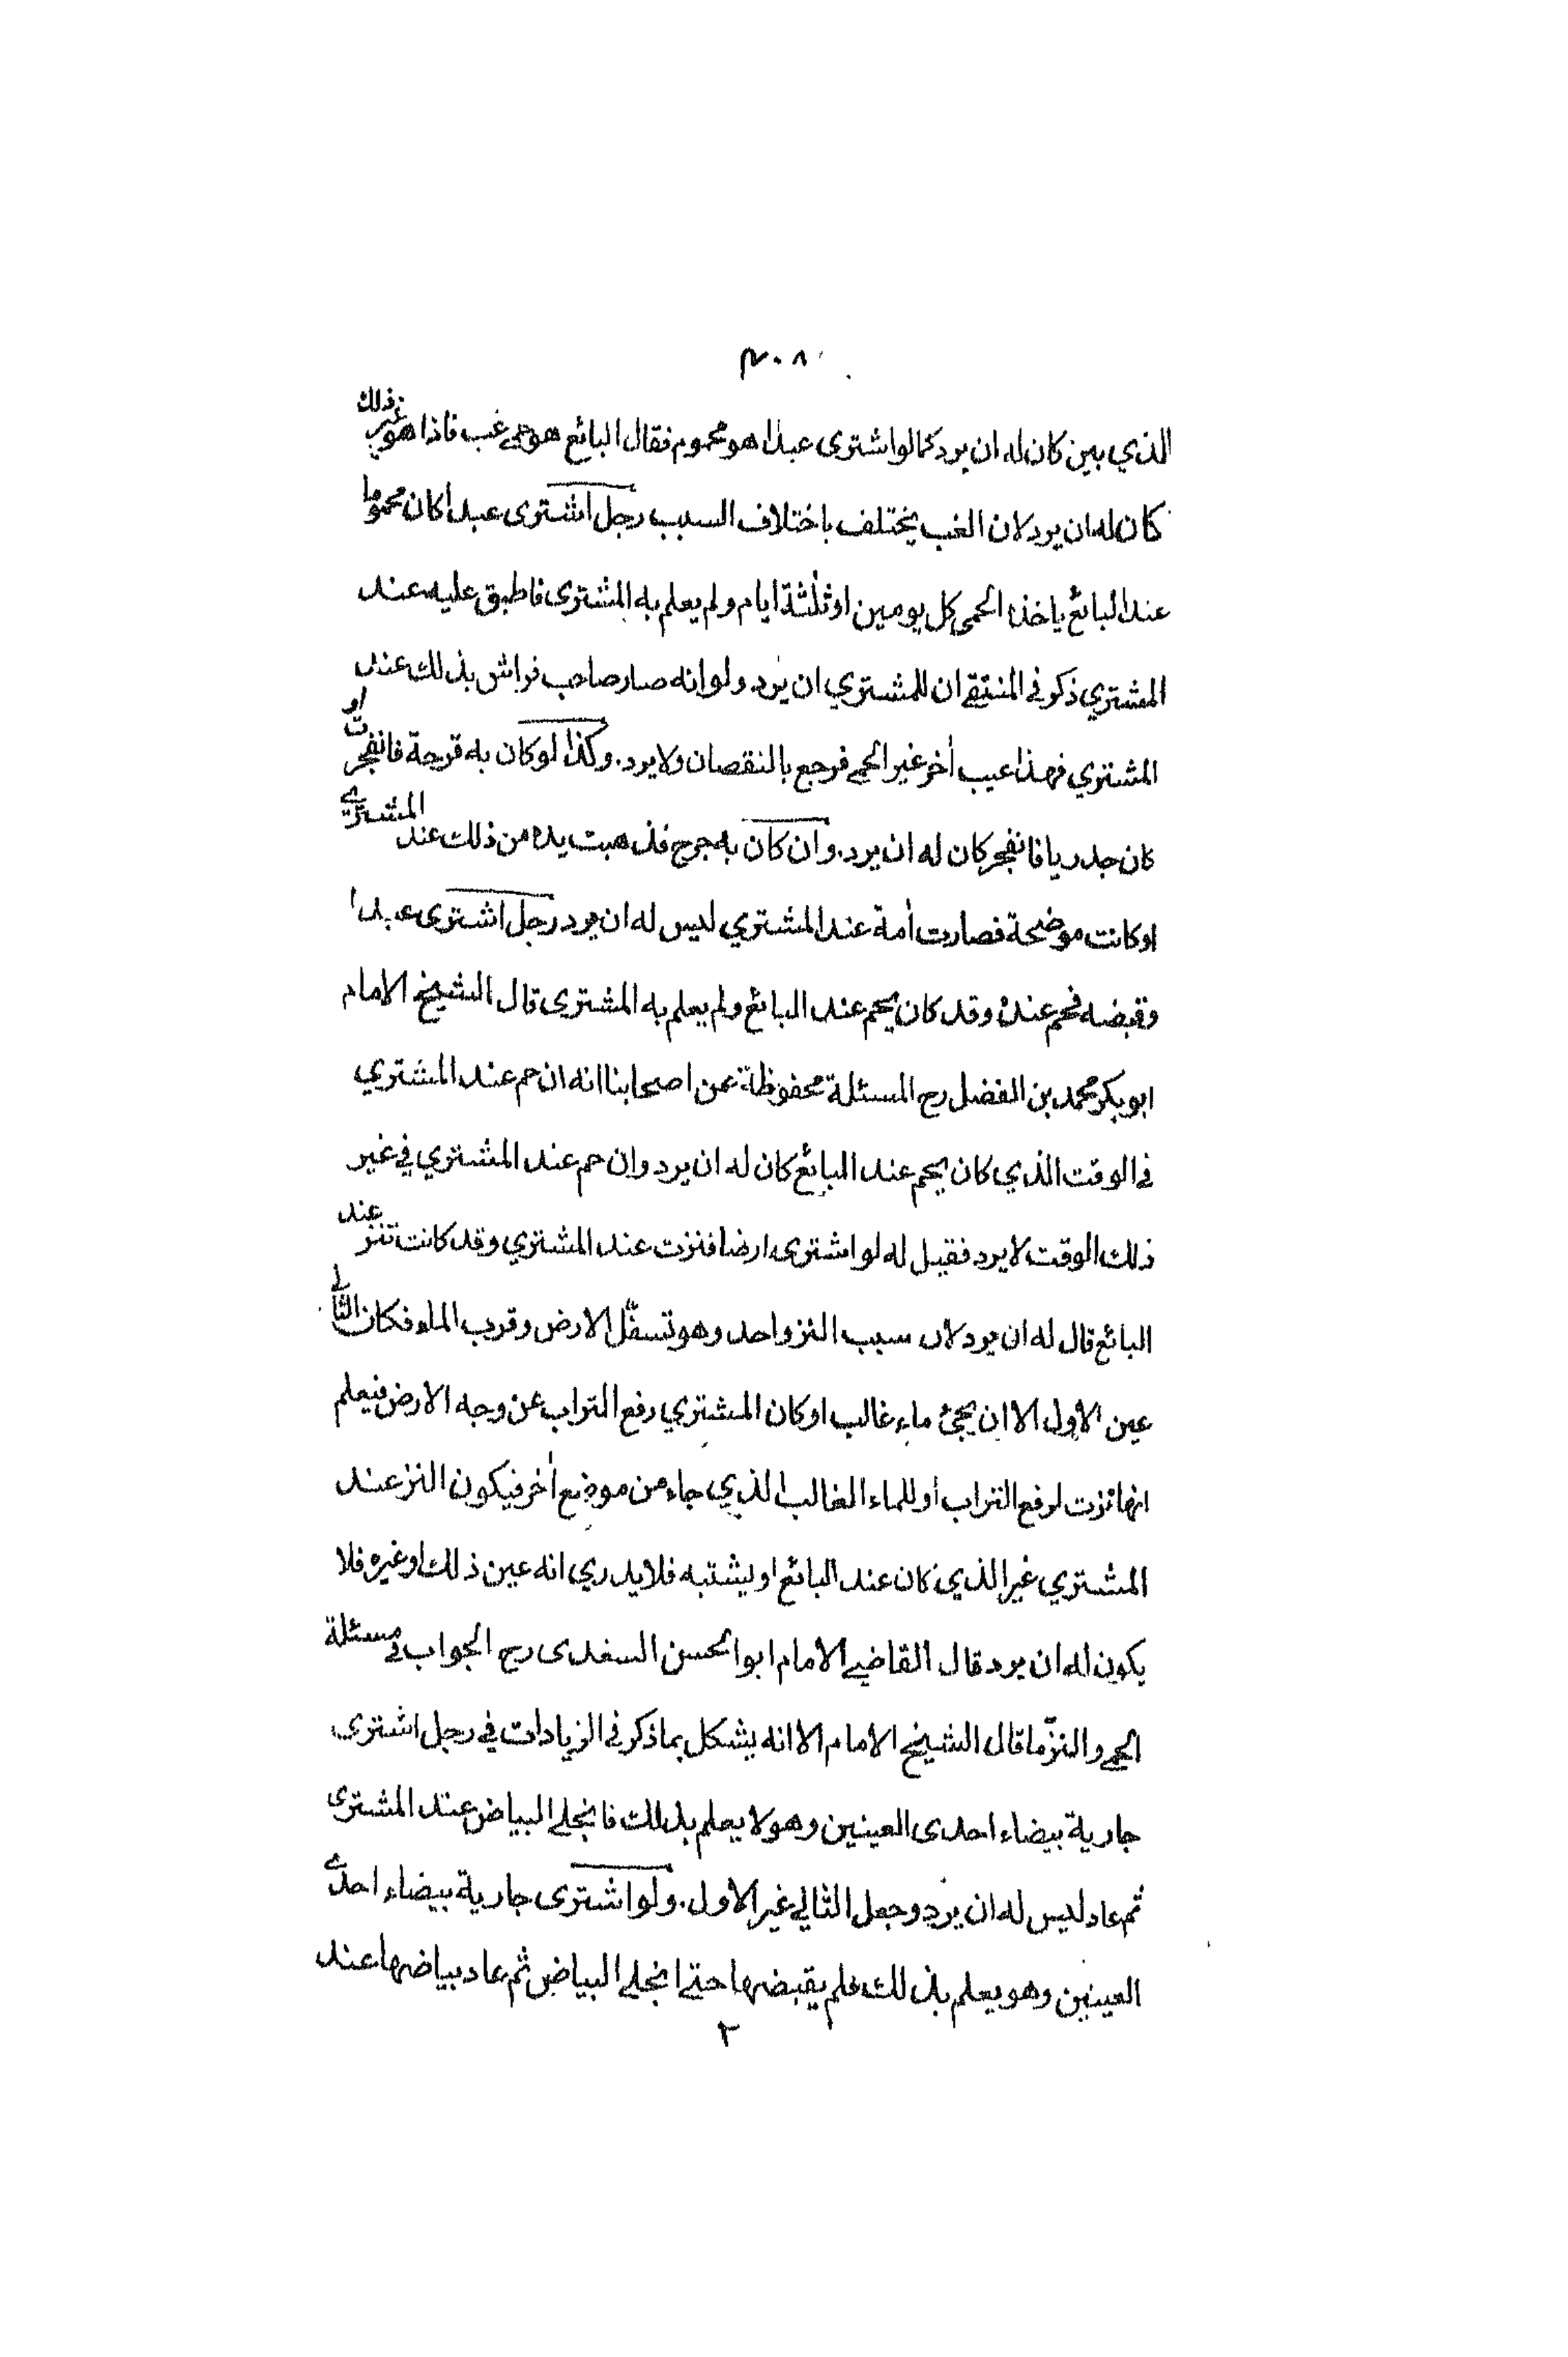 ٣٠٨
الذي بين كان له ان يرد كما لو اشترى عبدا هو محموم فقال البائع هو حمى غب فاذا هو غير ذلك
كان له ان يرد لان الغب يختلف باختلاف السبب رجل اشترى عبدا كان محموما
عند البائع ياخذه الحمى كل يومين او ثلثة ايام ولم يعلم به المشترى فاطبق عليه عند
المشتري ذكر في المنتقى ان للمشتري ان يرد ولو انه صار صاحب فراش بذلك عند
المشتري فهذا عيب أخر غير الحمى فرجع بالنقصان ولا يرد. وكذا لو كان به قرحة فانفجرت او
كان جدريا فانفجر كان له ان يرد. وان كان به جرح فذهبت يده من ذلك عند المشتري
او كانت موضحة فصارت أمة عند المشتري ليس له ان يرد رجل اشترى عبدا
وقبضه فحم عنده وقد كان يحم عند البائع ولم يعلم به المشترى قال الشيخ الامام
ابو بكر محمد بن الفضل رح المسئلة محفوظة عن اصحابنا انه ان حم عند المشتري
في الوقت الذي كان يحم عند البائع كان له ان يرد وان حم عند المشتري في غير
ذلك الوقت لا يرد فقيل له لو اشترى ارضا فنزت عند المشتري وقد كانت تنز عند
البائع قال له ان يرد لان سبب النز واحد وهو تسفّل الارض وقرب الماء فكان الثاني
عين الاول الا ان يجئ ماء غالب او كان المشتري رفع التراب عن وجه الارض فيعلم
انها نزت لرفع التراب او للماء الغالب الذي جاء من موضع أخر فيكون النز عند
المشتري غير الذي كان عند البائع او يشتبه فلا يدري انه عين ذلك او غيره فلا
يكون له ان يرد قال القاضي الامام ابو الحسن السغدى رح الجواب في مسئلة
الحمى والنزّ ما قال الشيخ الامام الا انه يشكل بما ذكر في الزيادات في رجل اشترى
جارية بيضاء احدى العينين وهو لا يعلم بذلك فانجلى البياض عند المشترى
ثم عاد ليس له ان يرد وجعل الثاني غير الاول. ولو اشترى جارية بيضاء احدى
العينين وهو يعلم بذلك فلم يقبضها حتى انجلى البياض ثم عاد بياضها عند
٢